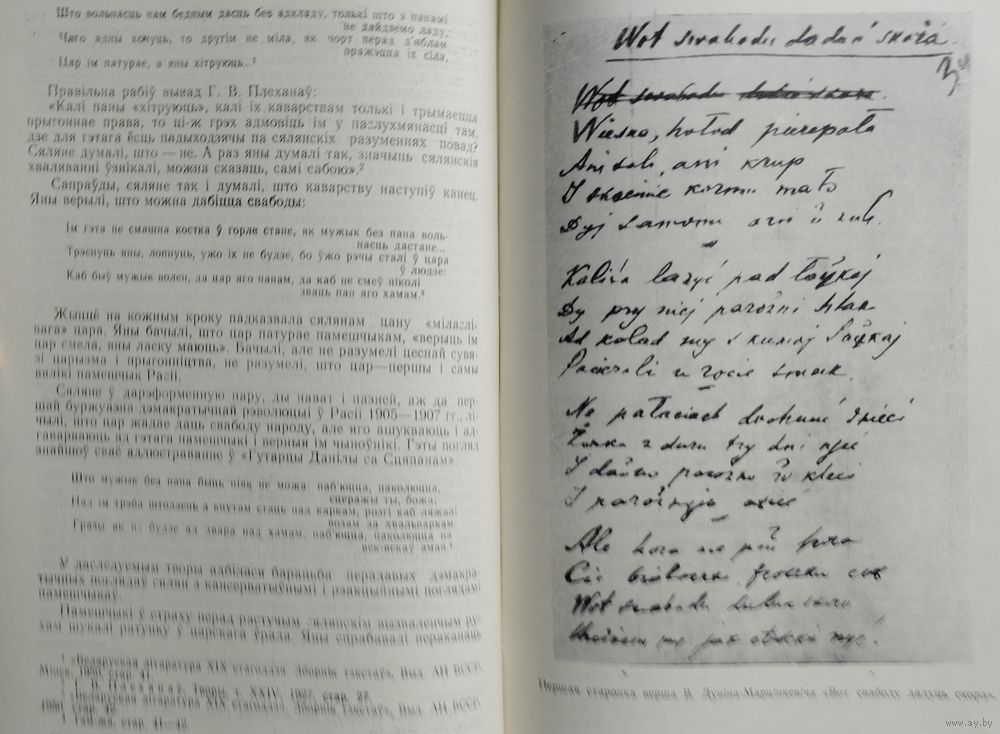 Што вольнасць нам бедным дасць без адкладу, толькі што з панамі
не дайдземо ладу.
Чаго адны хочуць, то другім не міла, як чорт перад д'яблам
пражэцца іх сіла,
Цар ім патурае, а яны хітруюць...¹
Правільна рабіў вывад Г. В. Плеханаў:
«Калі паны «хітруюць», калі іх каварствам толькі і трымаецца
прыгоннае права, то ці-ж грэх адмовіць ім у паслухмянасці там,
дзе для гэтага ёсць падыходзячы па сялянскіх разуменнях повад?
Сяляне думалі, што — не. А раз яны думалі так, значыць сялянскія
хваляванні ўзнікалі, можна сказаць, самі сабою».²
Сапраўды, сяляне так і думалі, што каварству наступіў канец.
Яны верылі, што можна дабіцца свабоды:
Ім гэта не смашна костка ў горле стане, як мужык без пана воль-
насць дастане...
Трэснуць яны, лопнуць, ужо іх не будзе, бо ўжо рэчы сталі ў цара
ў людзе:
Каб быў мужык волен, да цар яго панам, да каб не смеў ніколі
зваць пан яго хамам.³
Жыццё на кожным кроку падказвала сялянам цану «міласлі-
вага» цара. Яны бачылі, што цар патурае памешчыкам, «верыць ім
цар смела, яны ласку маюць». Бачылі, але не разумелі цеснай сувя-
зі царызма і прыгонніцтва, не разумелі, што цар—першы і самы
вялікі памешчык Расіі.
Сяляне ў дарэформенную пару, ды нават і пазней, аж да пер-
шай буржуазна-дэмакратычнай рэволюцыі ў Расіі 1905—1907 гг., лі-
чылі, што цар жадае даць свабоду народу, але яго ашукваюць і ад-
гаварваюць ад гэтага памешчыкі і верныя ім чыноўнікі. Гэты погляд
знайшоў сваё адлюстраванне ў «Гутарцы Данілы са Сцяпанам».
Што мужык без пана быць ніяк не можа: паб'юцца, паколюцца,
сцеражы ты, божа;
Над ім трэба штодзень з кнутам стаць над каркам, розгі каб ляжалі
возам за хвальваркам.
Гразы як не будзе ад двара над хамам, паб'юцца, паколюцца на
век-векаў аман.
У даследуемым творы адбілася барацьба перадавых дэмакра-
тычных поглядаў сялян з кансерватыўнымі і рэакцыйнымі поглядамі
памешчыкаў.
Памешчыкі ў страху перад растучым сялянскім вызваленчым ру-
хам шукалі ратунку ў царскага ўрада. Яны спрабавалі пераканаць
¹ «Беларуская літаратура XIX стагоддзя. Зборнік тэкстаў», Выд. АН БССР,
Мінск, 1950, стар. 41.
² Г. В. Плеханаў, Творы, т. XXIV, 1927, стар.
Там жа, стар. 41—42.
Wot swabodu daduć skora
3
Wot swabodu
Wiesna, hoład pierepała
Ani soli, ani krup
I skacinie kormu mało
Dyj samomu ani ŭ zub.
Kaliś lazyć pad łaŭkaj
Dy pry niej parożni
Ad kolad my s kumaj Saŭkaj
u rocie smak.
Na pałaciach dochnuć dzieci
Żonka z duru try dni
I daŭno parożno ŭ kleci
I parożnyja
Ale hora nie
Cic
Wot swabodu skora
my jak
Першая старонка верша В. Дуніна-Марцінкевіча «Вот свабоду дадуць скора».
www.ay.by